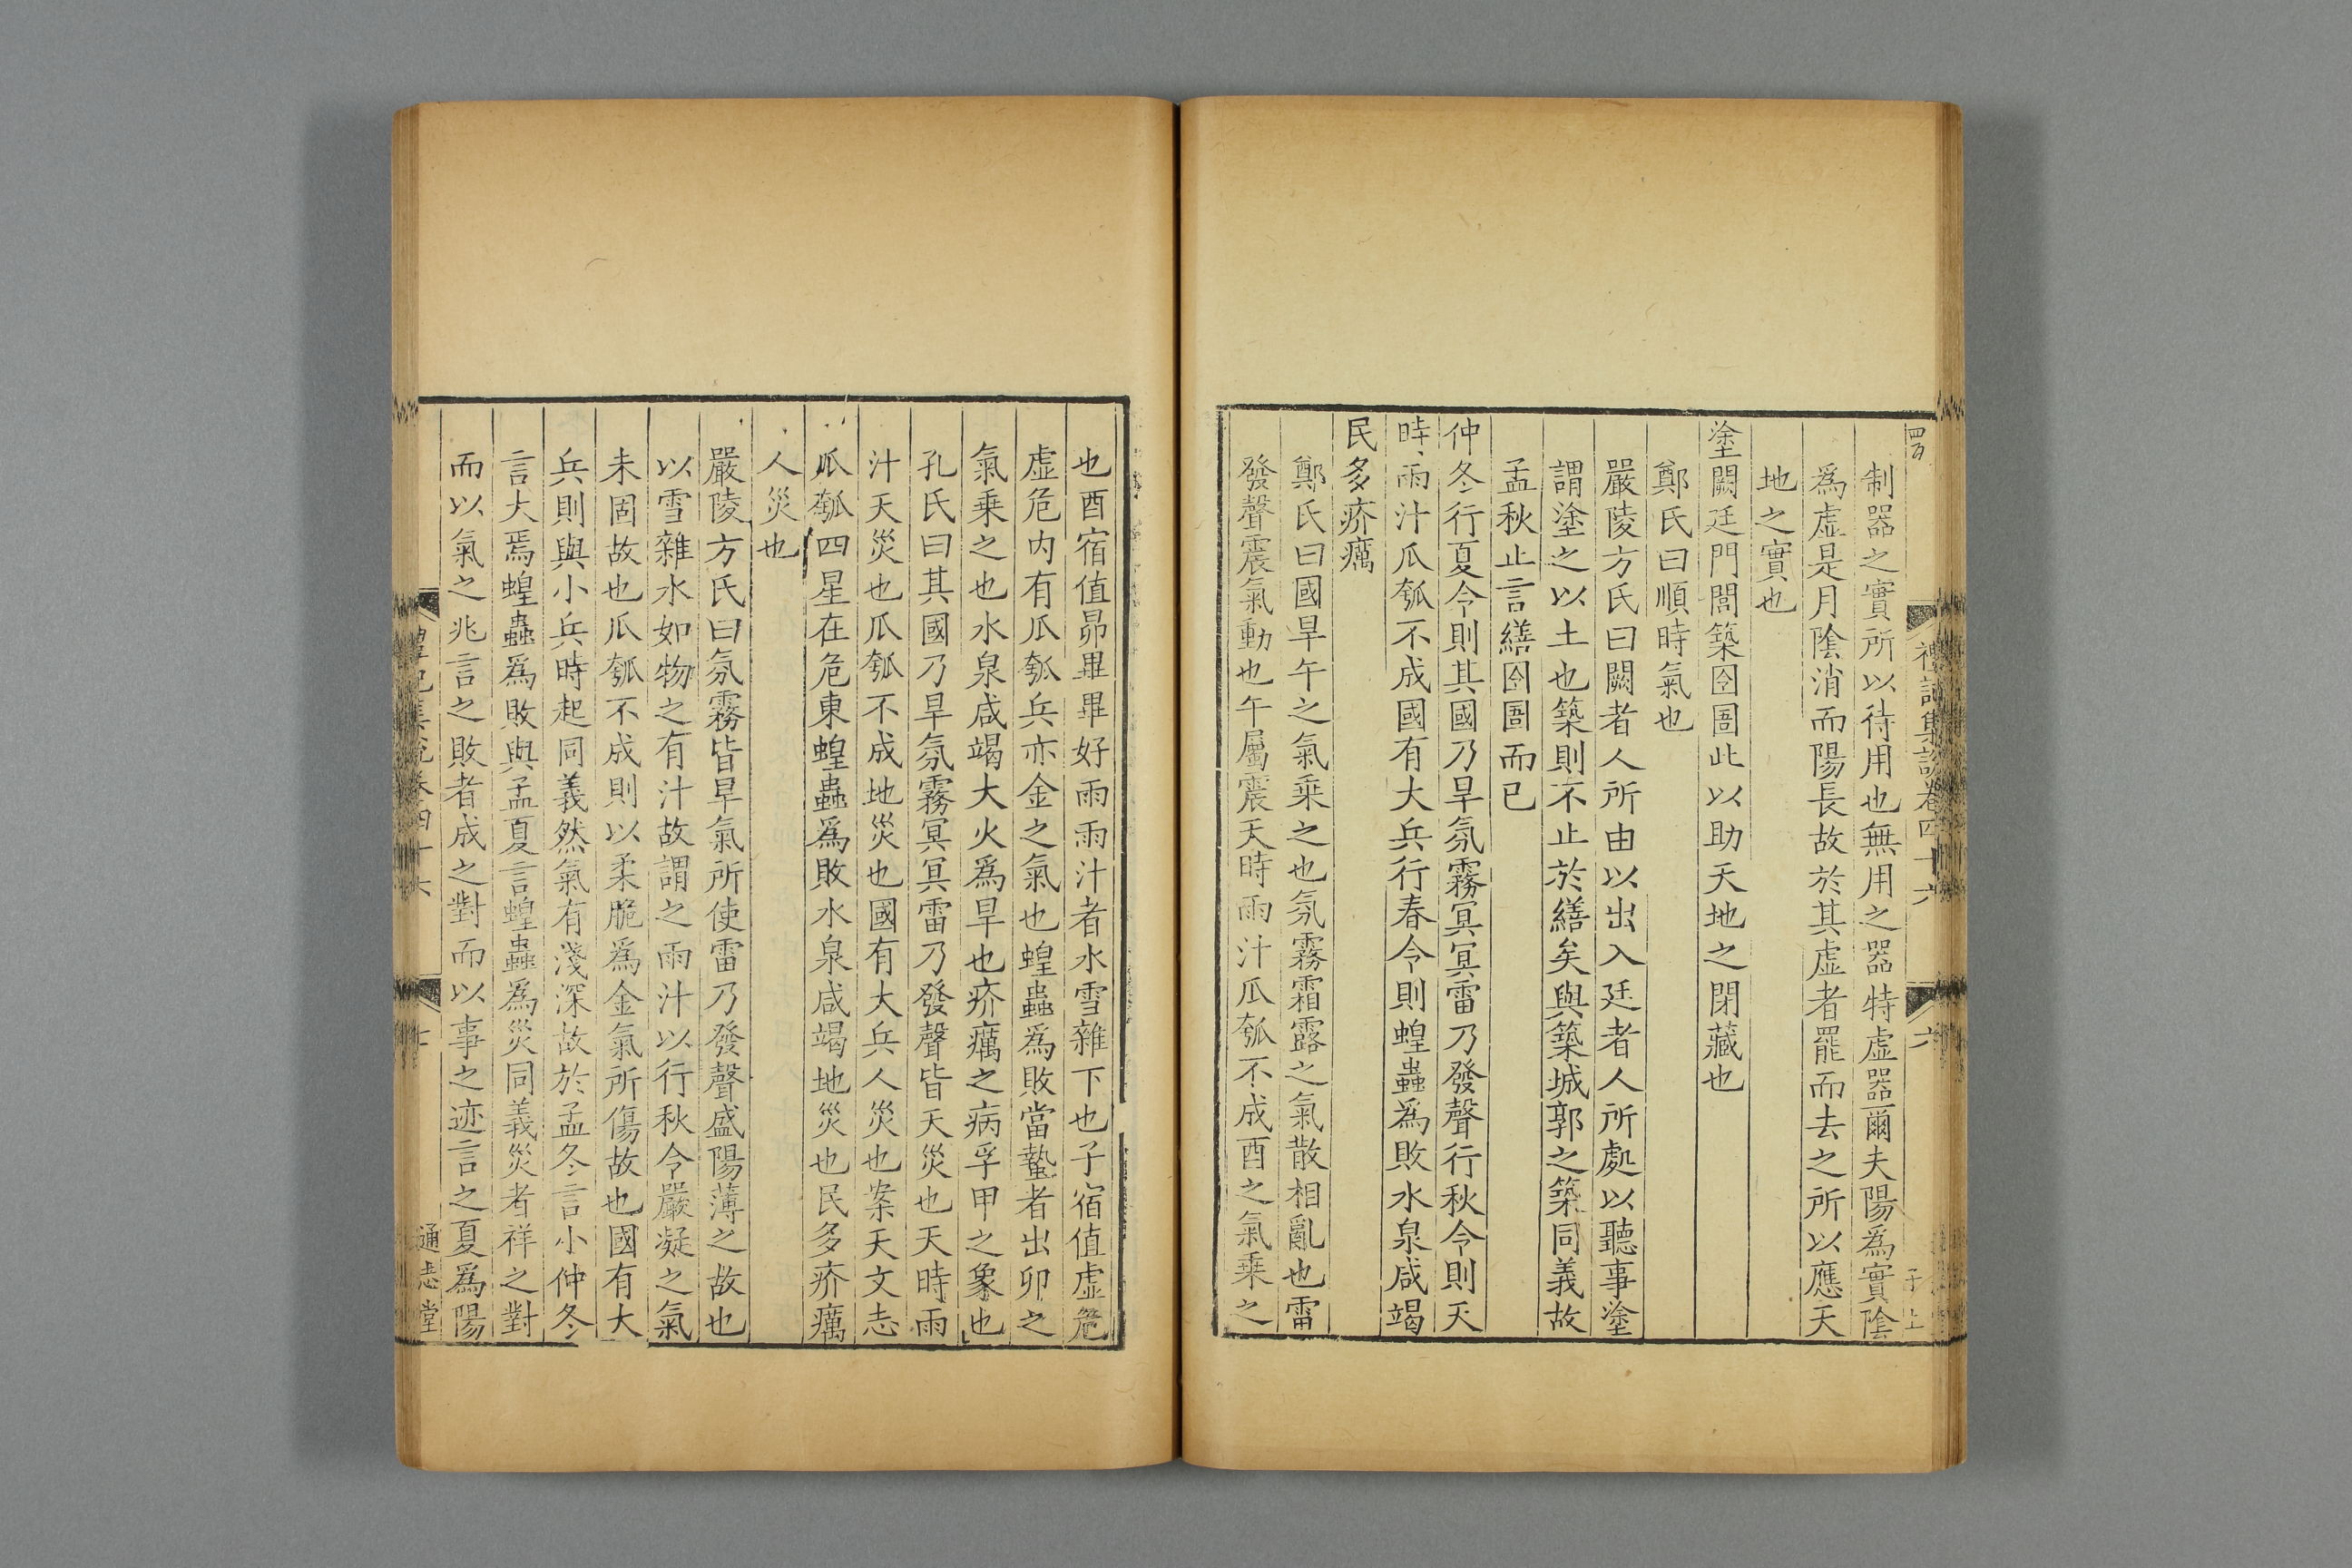 制器之實所以待用也無用之器特虛器爾夫陽為實陰
為虛是月陰消而陽長故於其虛者罷而去之所以應天
地之實也
塗闕廷門閭築囹圄此以助天地之閉藏也
鄭氏曰順時氣也
嚴陵方氏曰闕者人所由以出入廷者人所處以聽事塗
謂塗之以土也築則不止於繕矣與築城郭之築同義故
孟秋止言繕囹圄而已
仲冬行夏令則其國乃旱氛霧冥冥雷乃發聲行秋令則天
時雨汁瓜瓠不成國有大兵行春令則蝗蟲為敗水泉咸竭
民多疥癘
鄭氏曰國旱午之氣乗之也氛霧霜露之氣散相亂也雷
發聲震氣動也午屬震天時雨汁瓜瓠不成酉之氣乗之
也酉宿值昴畢畢好雨雨汁者水雪雜下也子宿值虛危
虛危内有瓜瓠兵亦金之氣也蝗蟲為敗當蟄者出卯之
氣乗之也水泉咸竭大火為旱也疥癘之病孚甲之象也
孔氏曰其國乃旱氛霧冥冥雷乃發聲皆天災也天時雨
汁天災也瓜瓠不成地災也國有大兵人災也案天文志
瓜瓠四星在危東蝗蟲為敗水泉咸竭地災也民多疥癘
人災也
嚴陵方氏曰氛霧皆旱氣所使雷乃發聲盛陽薄之故也
以雪雜水如物之有汁故謂之雨汁以行秋令嚴凝之氣
未固故也瓜瓠不成則以柔脆為金氣所傷故也國有大
兵則與小兵時起同義然氣有淺深故於孟冬言小仲冬
言大焉蝗蟲為敗與孟夏言蝗蟲為災同義災者祥之對
而以氣之兆言之敗者成之對而以事之迹言之夏為陽
禮記集說卷四十六
六
禮記集說卷四十六
七
通志堂